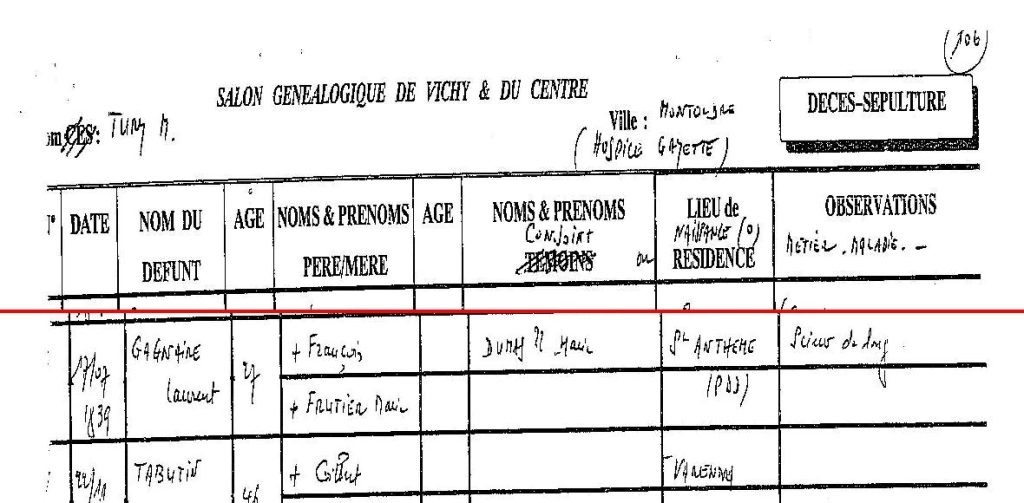 106
SALON GENEALOGIQUE DE VICHY & DU CENTRE
DECES-SEPULTURE
Ville : MONTOLDRE
(HOSPICE GAYETTE)
TURY M.
N° DATE NOM DU DEFUNT AGE NOMS & PRENOMS PERE/MERE AGE NOMS & PRENOMS CONJOINT TEMOINS ou LIEU de NAISSANCE (O) RESIDENCE OBSERVATIONS METIER. MALADIE. -
17/07 1839 GAGNAIRE Laurent 27 + François DUMAS Marie St ANTHEME (PDD) Scieur de long
+ FRUTIER Marie
22/11 TABUTIN 46 + Gilbert VARENNES